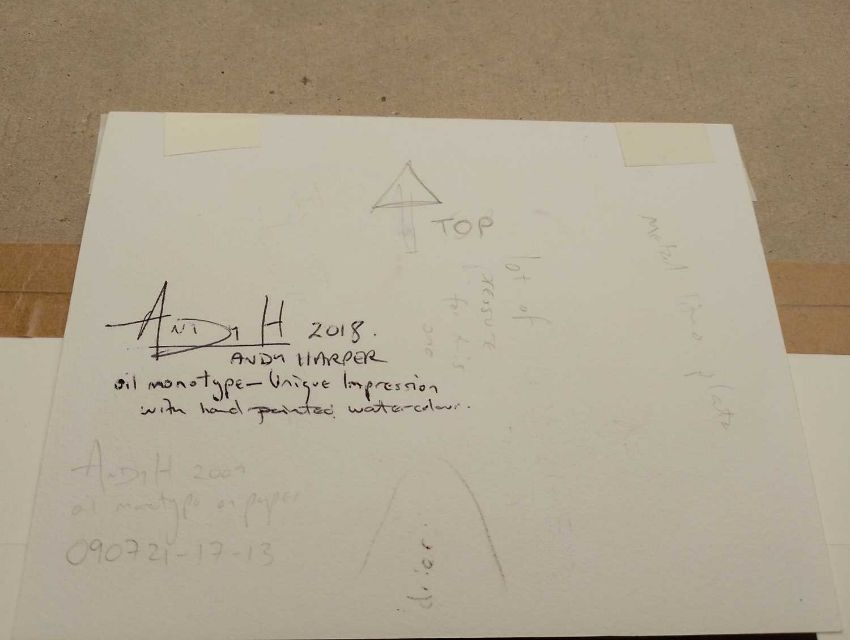 TOP
ANDY H 2018.
ANDY HARPER
oil monotype - Unique Impression
with hand painted watercolour.
ANDY H 2009
oil monotype on paper
090721-17-13
lot of
pressure
for this
one
metal
plate